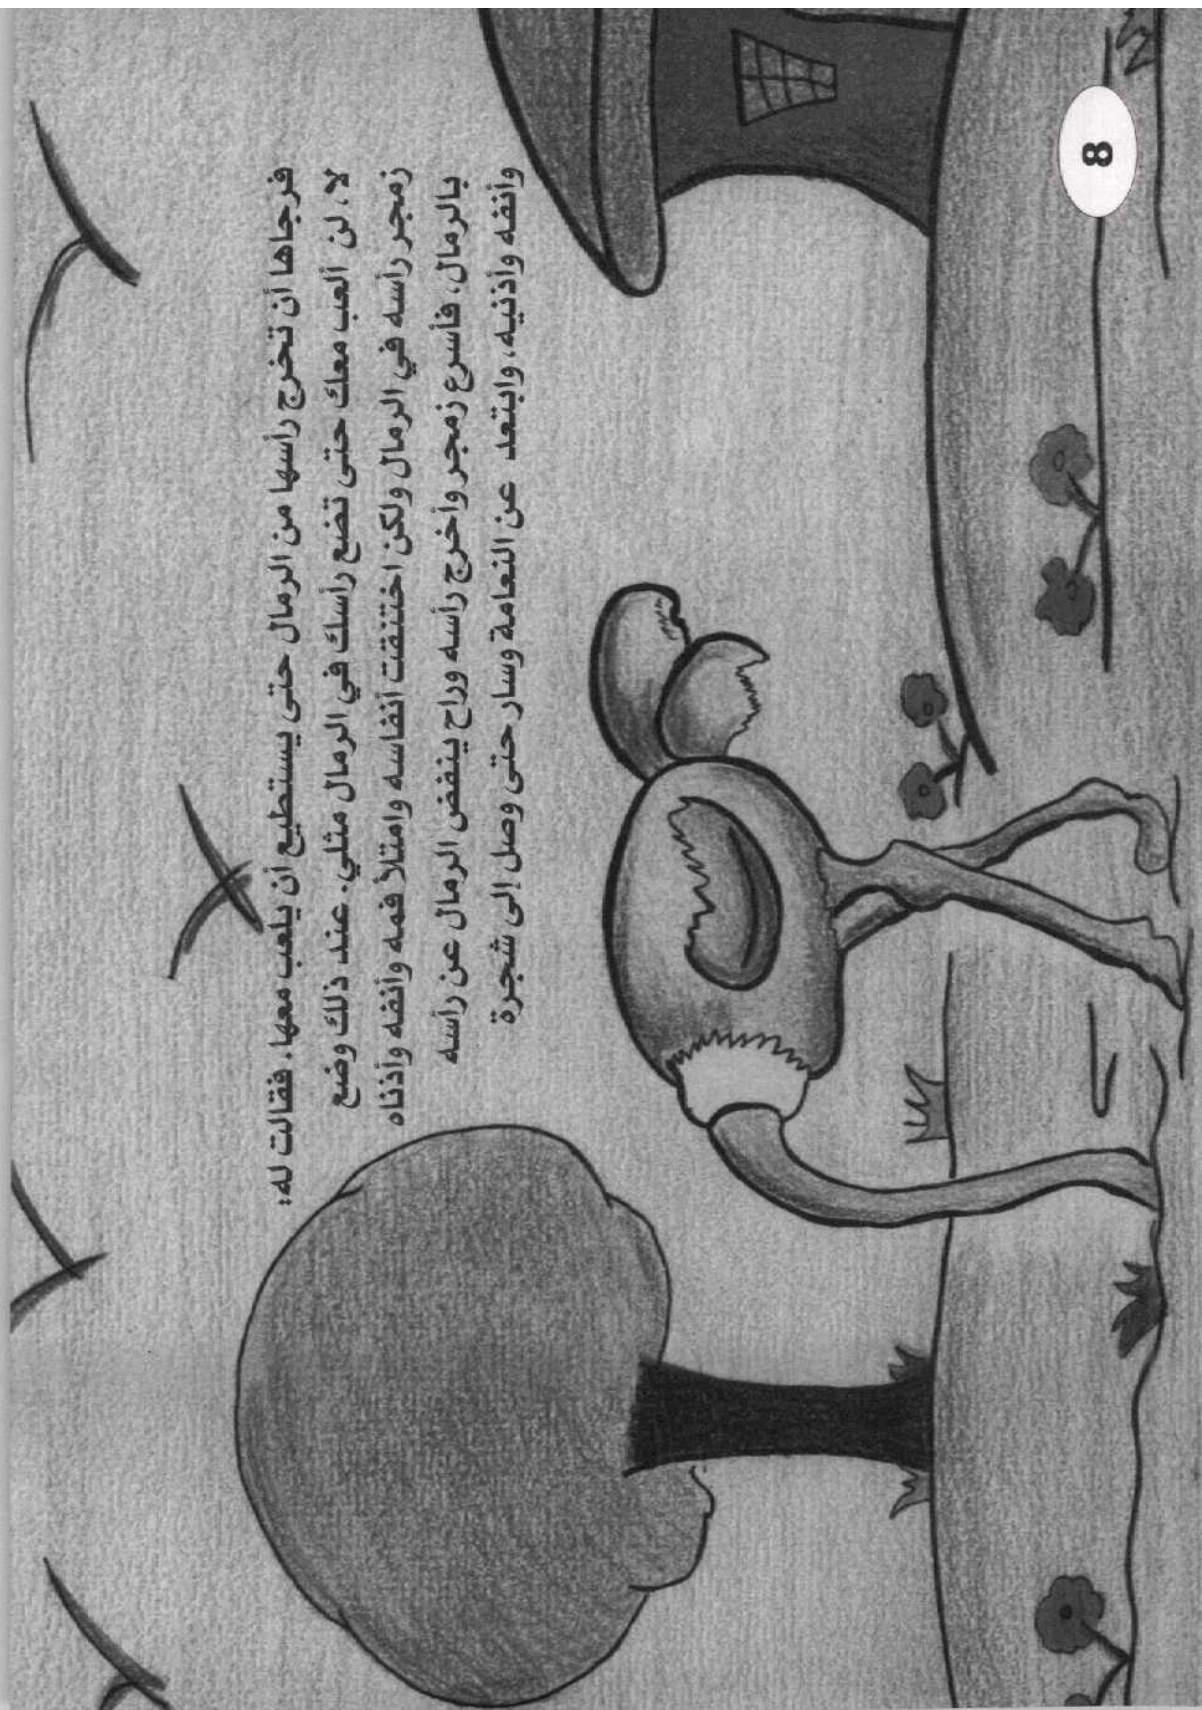 فرجاها أن تخرج رأسها من الرمال حتى يستطيع أن يلعب معها. فقالت له:
لا، لن ألعب معك حتى تضع رأسك في الرمال مثلي. عند ذلك وضع
زمجر رأسه في الرمال ولكن اختنقت أنفاسه وامتلأ فمه وأنفه وأذناه
بالرمال، فأسرع زمجر وأخرج رأسه وراح ينفض الرمال عن رأسه
وأنفه وأذنيه، وابتعد عن النعامة وسار حتى وصل إلى شجرة
8